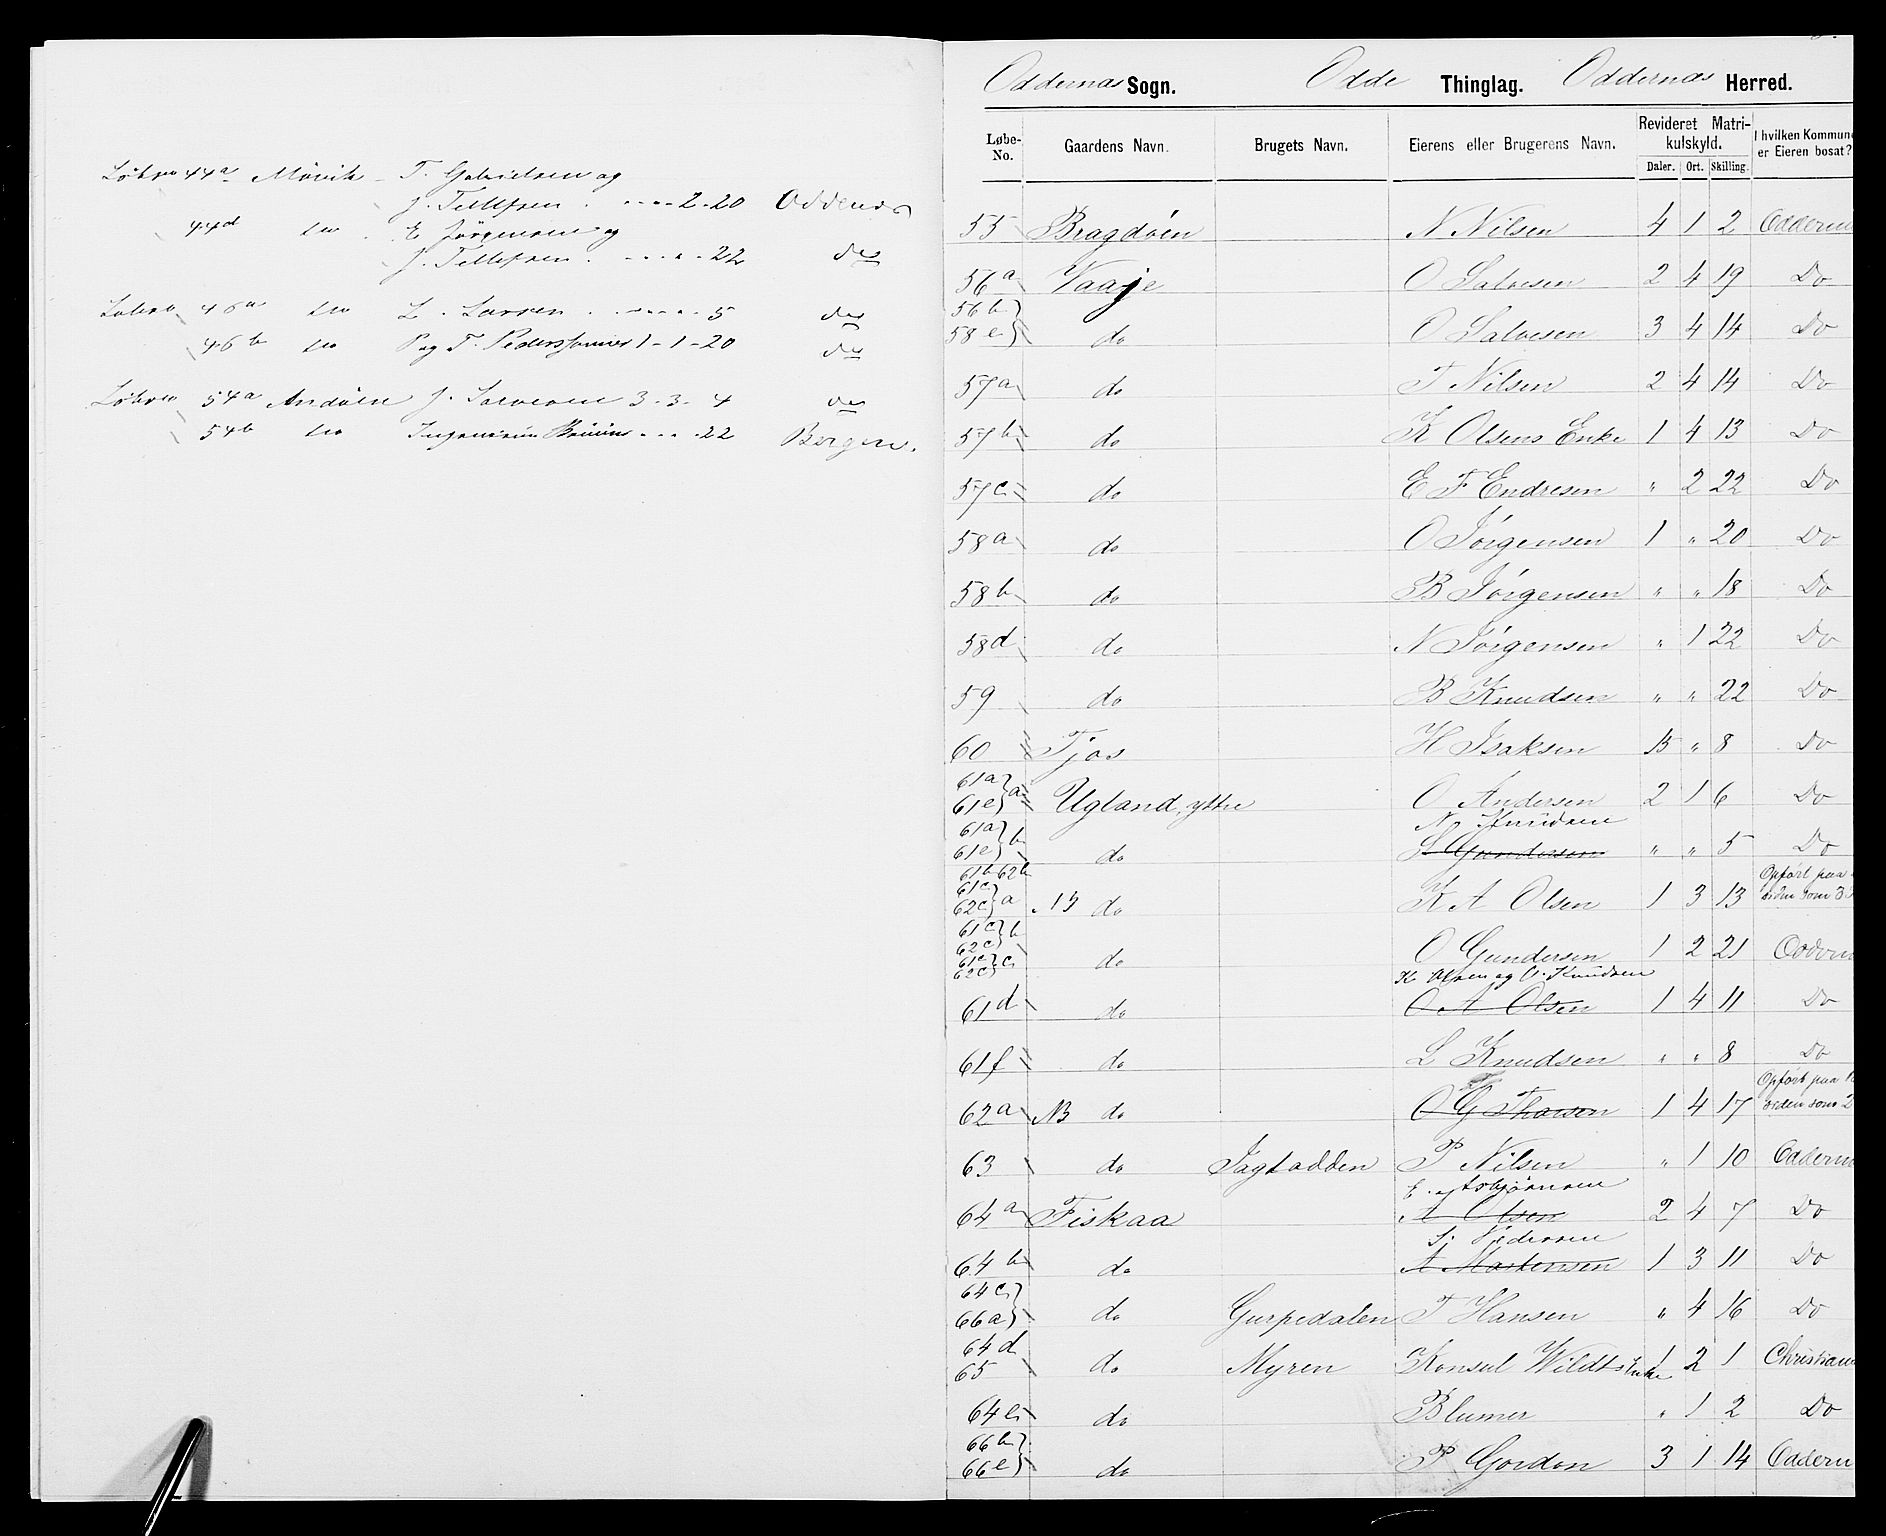 Løbno 44a Møvik - T. Gabrielsen og
J. Tellefsen . - - - - 2 - 20 Oddernæs
44d do . E Jørgensen og
J. Tellefsen . - - - - 22 do
Løbno 46a do L. Larsen . - - - - 5 do
46b do P og T. Pederssønner 1 - 1 - 20 do
Løbno 54a Andøen J. Salvesen 3 - 3 - 4 do
54b do Ingeniør - - - 22 Bergen.
Oddernæs Sogn. Odde Thinglag. Oddernæs Herred.
Løbe-No. Gaardens Navn. Brugets Navn. Eierens eller Brugerens Navn. Revideret Matrikulskyld. I hvilken Kommune er Eieren bosat?
Daler. Ort. Skilling.
55 Bragdøen N Nilsen 4 1 2 Oddern
56a Vaaje O Salvesen 2 4 19 Do
56b
58e do O Salvesen 3 4 14 Do
57a do T Nilsen 2 4 14 Do
57b do K Olsens Enke 1 4 13 Do
57c do E F Endresen " 2 22 Do
58a do O Jørgensen 1 " 20 Do
58b do B Jørgensen " " 18 Do
58d do N Jørgensen " 1 22 Do
59 do B Knudsen " " 22 Do
60 Tjos H Isaksen " 8 Do
61a
61e a Ugland, ytre O Andersen 2 1 6 Do
N. Knudsen
61a
61e b do S Gundersen " " 5 Do
61b 62b
61c
62c a NB do K A Olsen 1 3 13 Opført paa siden som
61c
62c b do O Gundersen 1 2 21 Oddern
61c
62c c
K Olsen og O. Knudsen
61d do O A Olsen 1 4 11 Do
61f do L Knudsen " " 8 Do
62a NB do O G Thorsen 1 4 17 Opført paa siden som 2
63 do Jagtodden P Nilsen " 1 10 Oddern
E. Asbjørnsen
64a Fiskaa A Olsen 2 4 7 Do
S. Pedersen
64b do A Mortensen 1 3 11 Do
64c
66a do Gurpedalen T Hansen " 4 16 Do
64d
65 do Myren Konsul Wildts Enke 1 2 1 Christian
64e do Blumer " 1 2 Do
66b
66e do P Gordon 3 1 14 Oddern